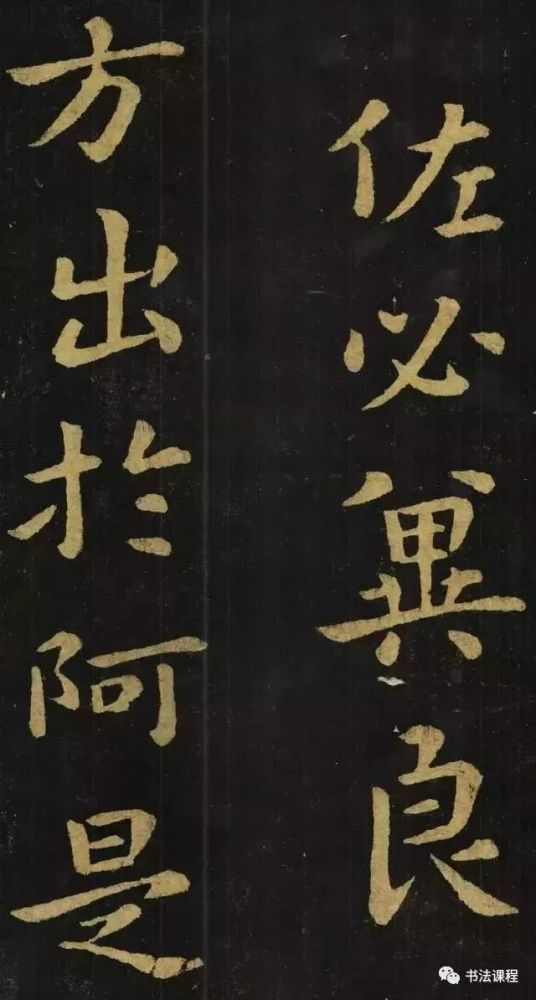 佐必兾良
方出於阿是
书法课程